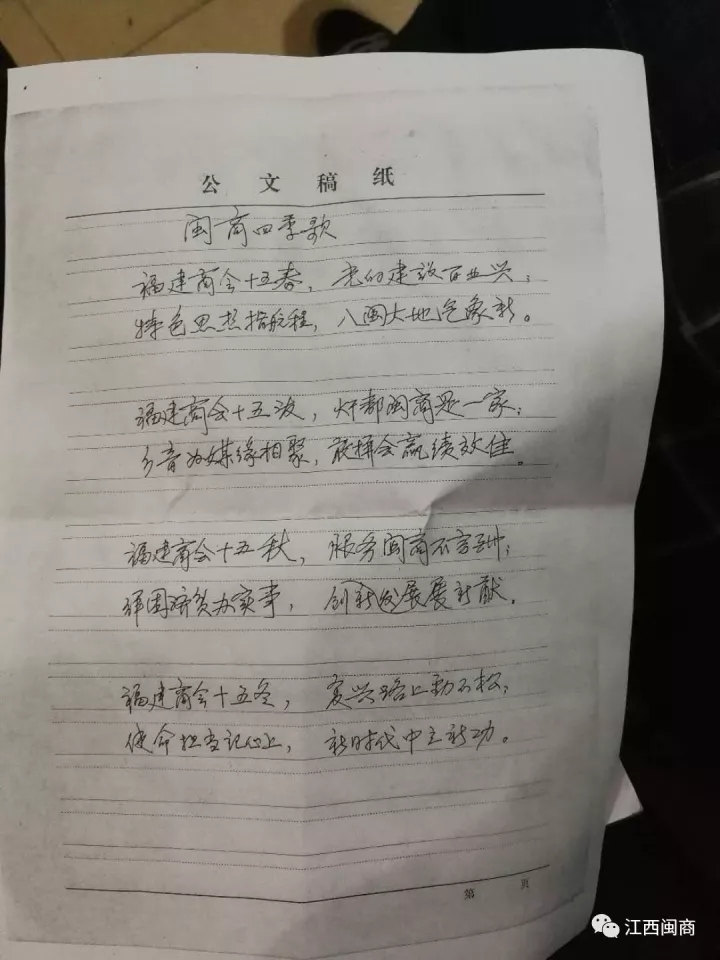 公文稿纸
闽商四季歌
福建商会十五春，党的建设百业兴；
特色思想指航程，八闽大地气象新。
福建商会十五夏，闽商是一家；
乡音为媒缘相聚，会赢绩效佳。
福建商会十五秋，服务闽商不言酬；
解困济贫办实事，创新发展展新猷。
福建商会十五冬，复兴路上勤不松；
使命担当记心上，新时代中立新功。
第 页
江西闽商